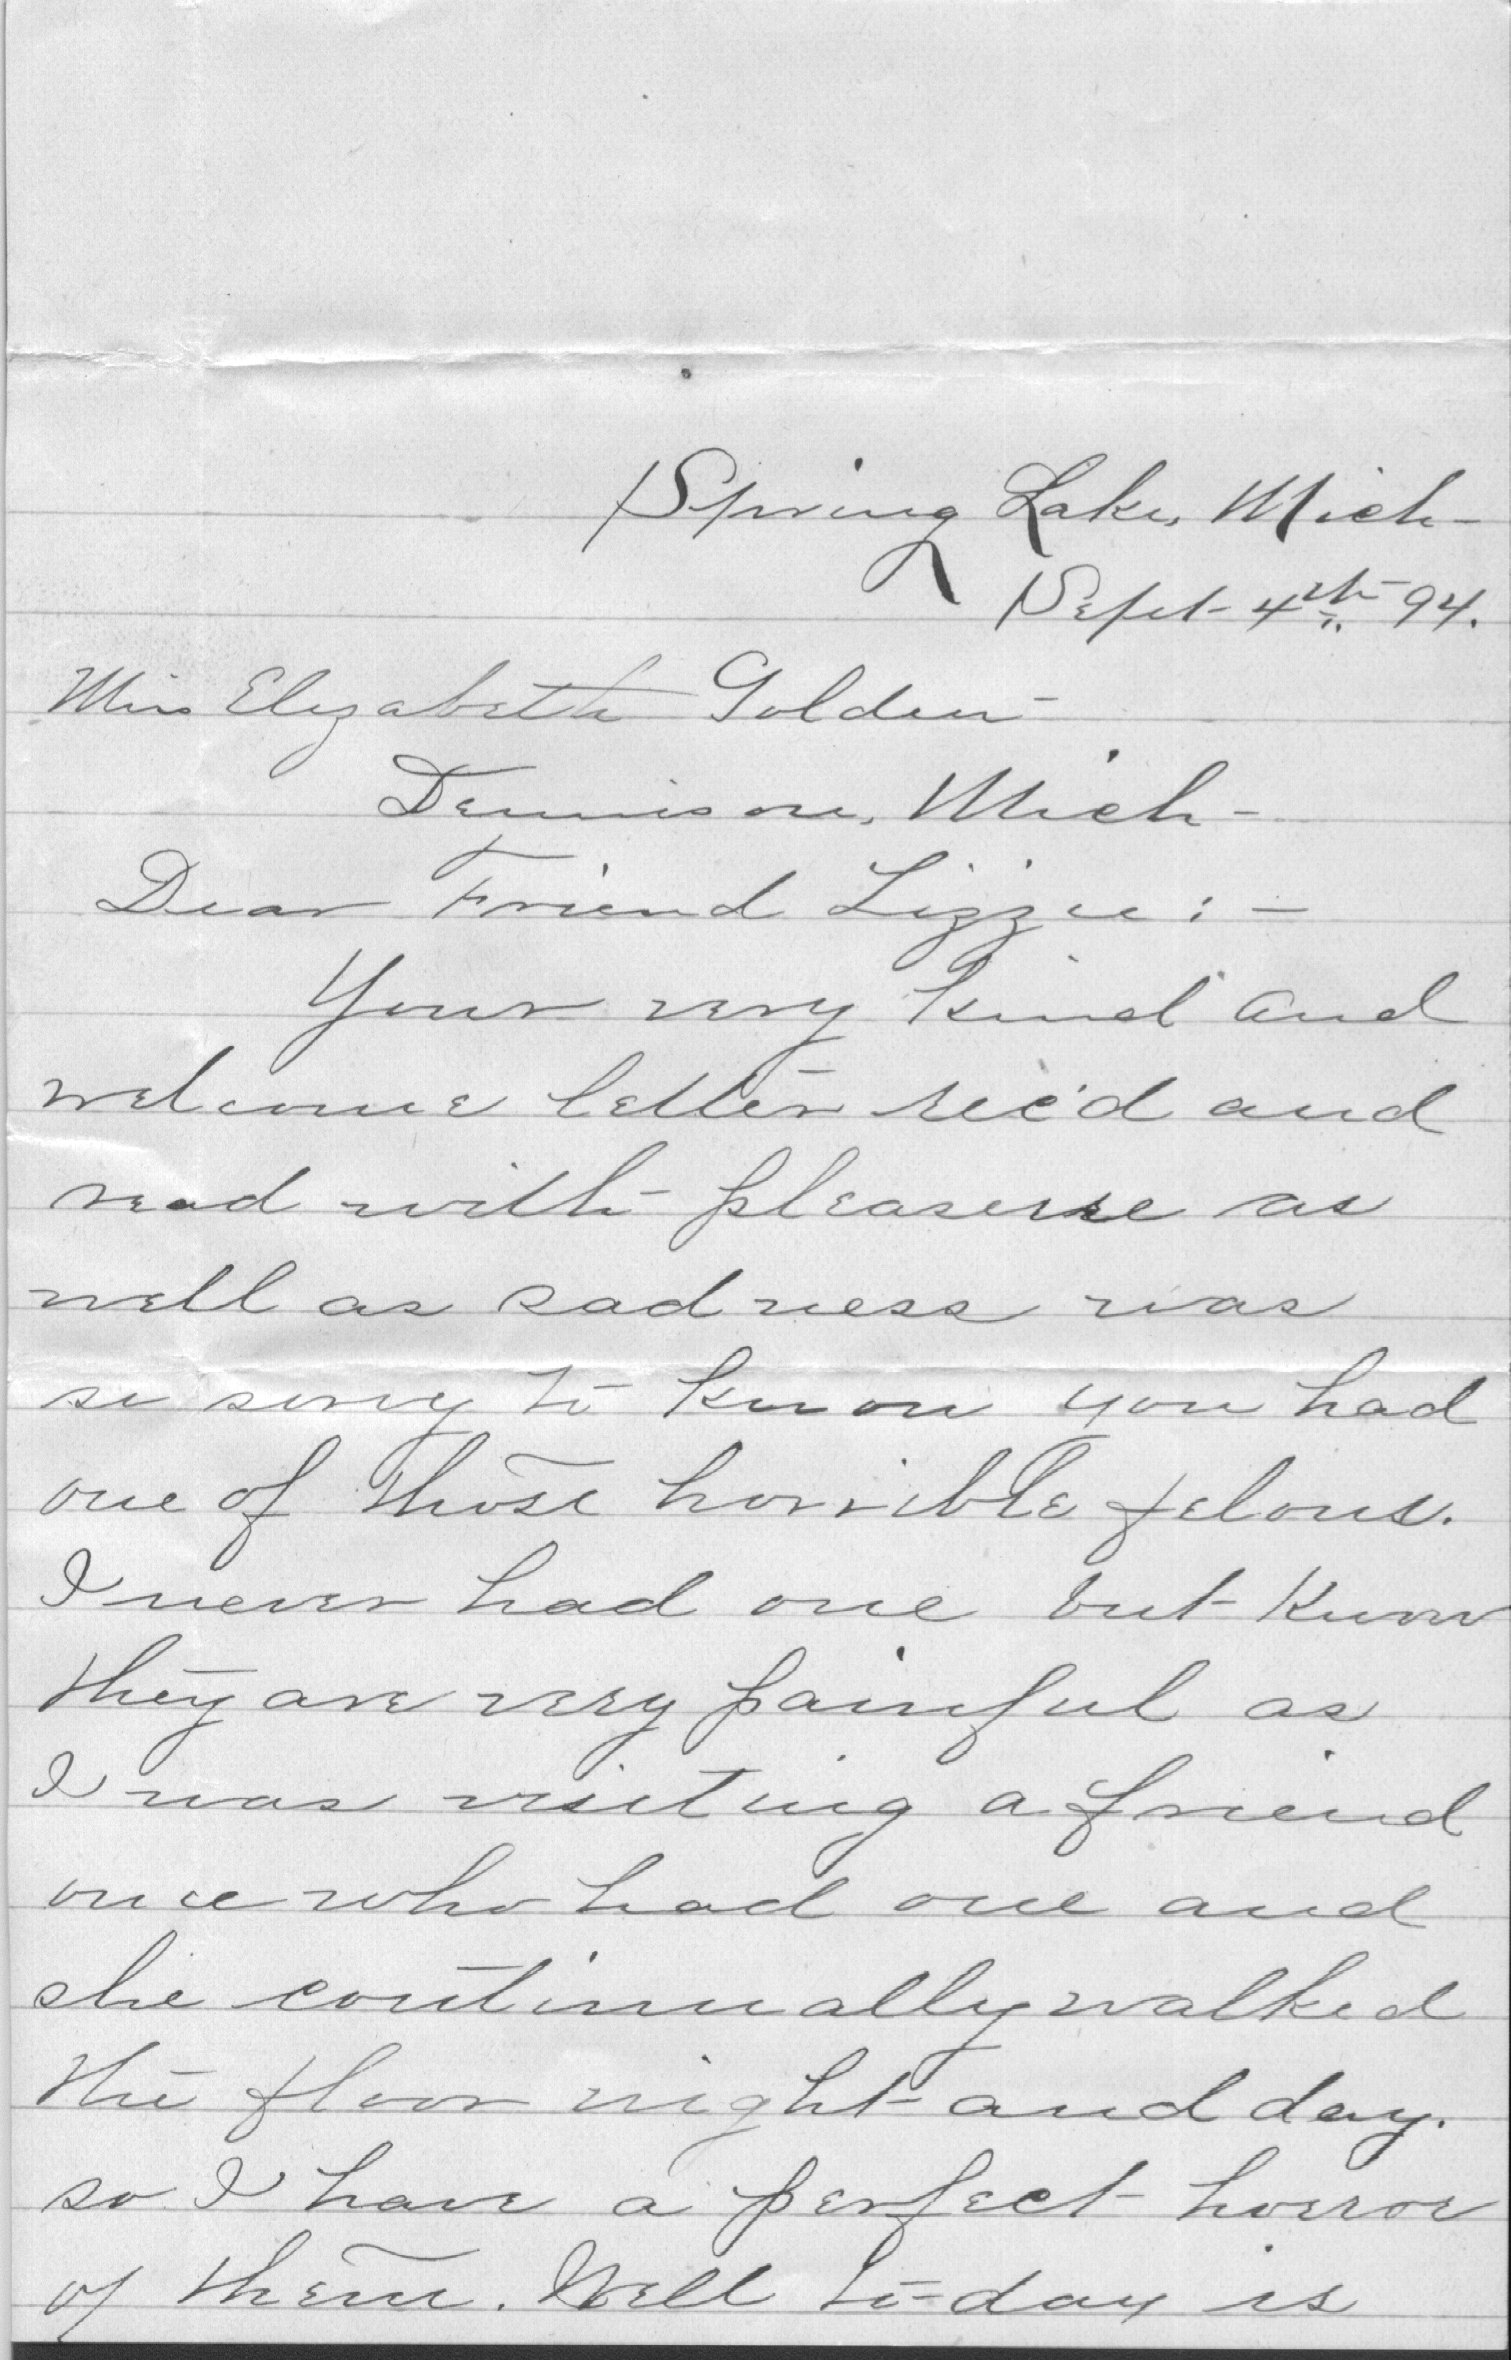 Spring Lake, Mich-
Sept- 4th 94.
Miss Elizabeth Golden-
Dennison, Mich-
Dear Friend Lizzie:-
Your very kind and
welcome letter rec'd and
read with pleasure as
well as sadness was
so sorry to know you had
one of those horrible felons.
I never had one but know
they are very painful as
I was visiting a friend
once who had one and
she continually walked
the floor night and day.
so I have a perfect horror
of them. Well to-day is